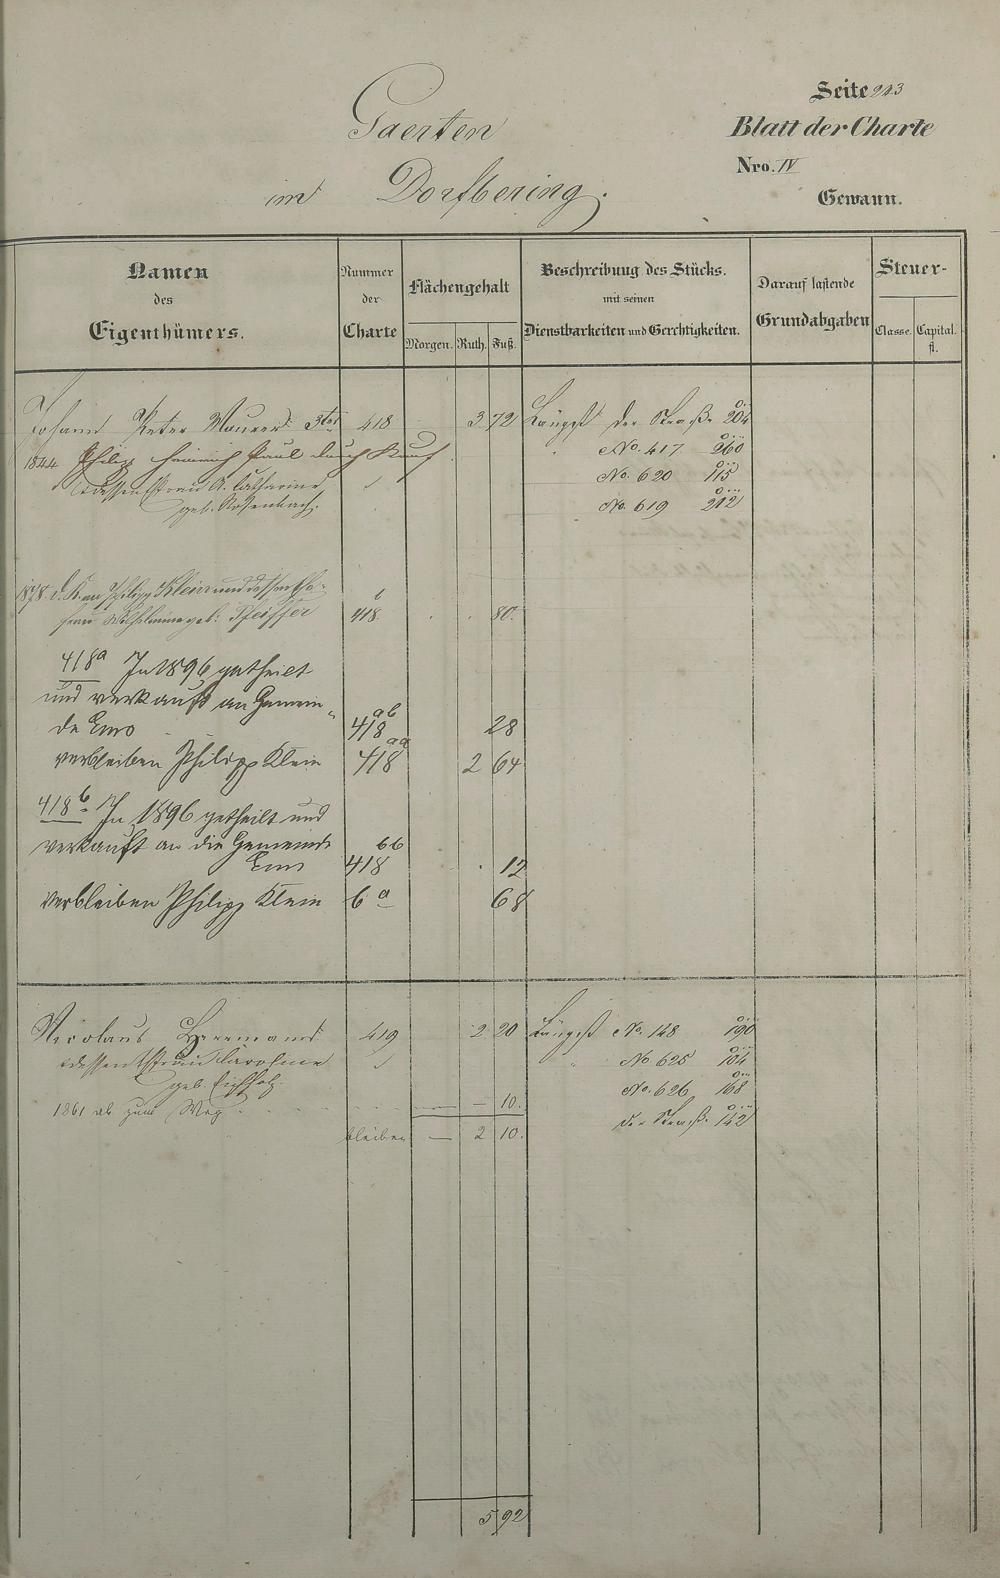 Seite 243
Gaerten
Blatt der Charte
Nro. IV
im Dorfbering.
Gewann.
Namen des Eigenthümers.
Nummer der Charte
Flächengehalt
Morgen. Ruth. Fuß.
Beschreibung des Stücks. mit seinen Dienstbarkeiten und Gerechtigkeiten.
Darauf lastende Grundabgaben
Steuer-
Classe. Capital. fl.
Johann Peter Maurer 3ter 418 3 72 Längst der Straße 204
1844 Philipp Heinrich Paul durch Kauf No. 417 260
& dessen Efrau A. Catharine No. 620 115
geb. Rosenbach. No. 619 212
1878 d. K. an Philipp Klein und dessen Ehe-
frau Wilhelmine geb. Pfeiffer 418 b 80.
418a In 1896 getheilt
und verkauft an Gemein-
de Ems 418 ab 28
verbleiben Philipp Klein 418 aa 2 64
418b In 1896 getheilt und
verkauft an die Gemeinde
Ems 418 bb 12
verbleiben Philipp Klein 6a 68
Nicolaus Herrmann 419 2 20 Längst No. 148 190
& dessen Efrau Caroline No 625 104
geb. Eichholz. No. 626 168
1861 ab zum Weg — — 10. der Straße 142
bleiben — 2 10.
5 92